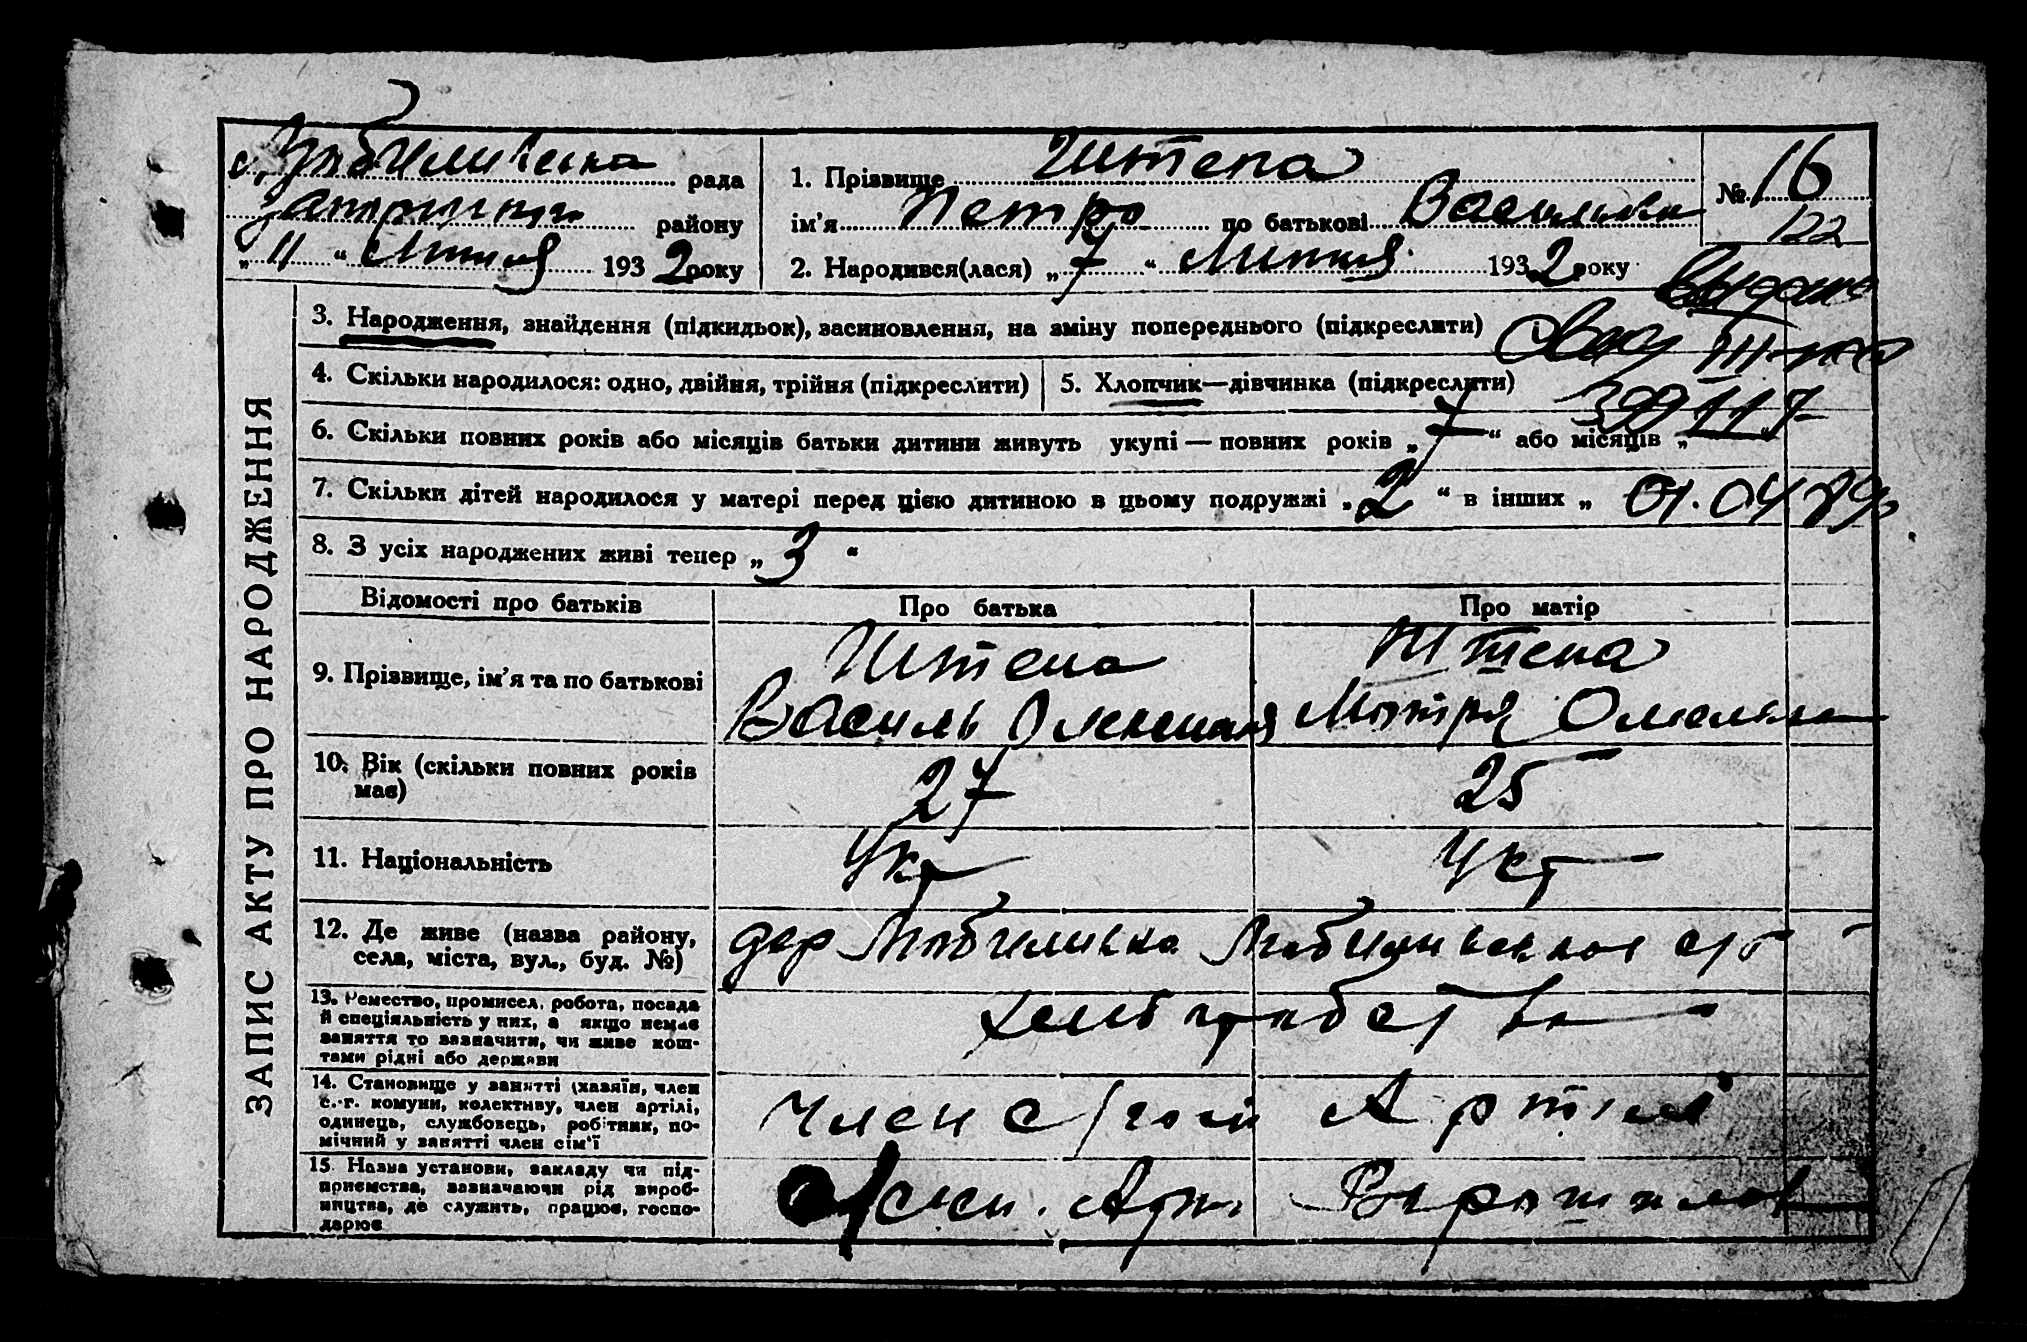 с. Любимівська рада
Запорізького району
„ 11 “ Липня 1932 року
1. Прізвище Штепа
ім’я Петро по батькові Васильови
2. Народився(лася) „ 7 “ Липня 1932 року
№ 16
122
Выдано
Свид III-
399117
01.04.89р
ЗАПИС АКТУ ПРО НАРОДЖЕННЯ
3. Народження, знайдення (підкидьок), засиновлення, на зміну попереднього (підкреслити)
4. Скільки народилося: одно, двійня, трійня (підкреслити)
5. Хлопчик—дівчинка (підкреслити)
6. Скільки повних років або місяців батьки дитини живуть укупі — повних років „ 7 “ або місяців „
7. Скільки дітей народилося у матері перед цією дитиною в цьому подружжі „ 2 “ в інших „
8. З усіх народжених живі тепер „ 3 “
Відомості про батьків Про батька Про матір
9. Прізвище, ім’я та по батькові
Штепа
Василь
Штепа
Мотря Омельк
10. Вік (скільки повних років
має)
27 25
11. Національність Укр Укр
12. Де живе (назва району,
села, міста, вул., буд. №)
дер Любимівка Любимівської с/р
13. Ремество, промисел, робота, посада
й спеціяльність у них, а якщо немає
заняття то зазначити, чи живе кош-
тами рідні або держави
хліборобство
14. Становище у занятті (хазяїн, член
с.-г. комуни, колективу, член артілі,
одинець, службовець, робітник, по-
мічний у занятті член сім’ї
член с/гос Артілі
15. Назва установи, закладу чи під-
приємства, зазначаючи рід вироб-
ництва, де служить, працює, госпо-
дарює
Арт. Ворошилов